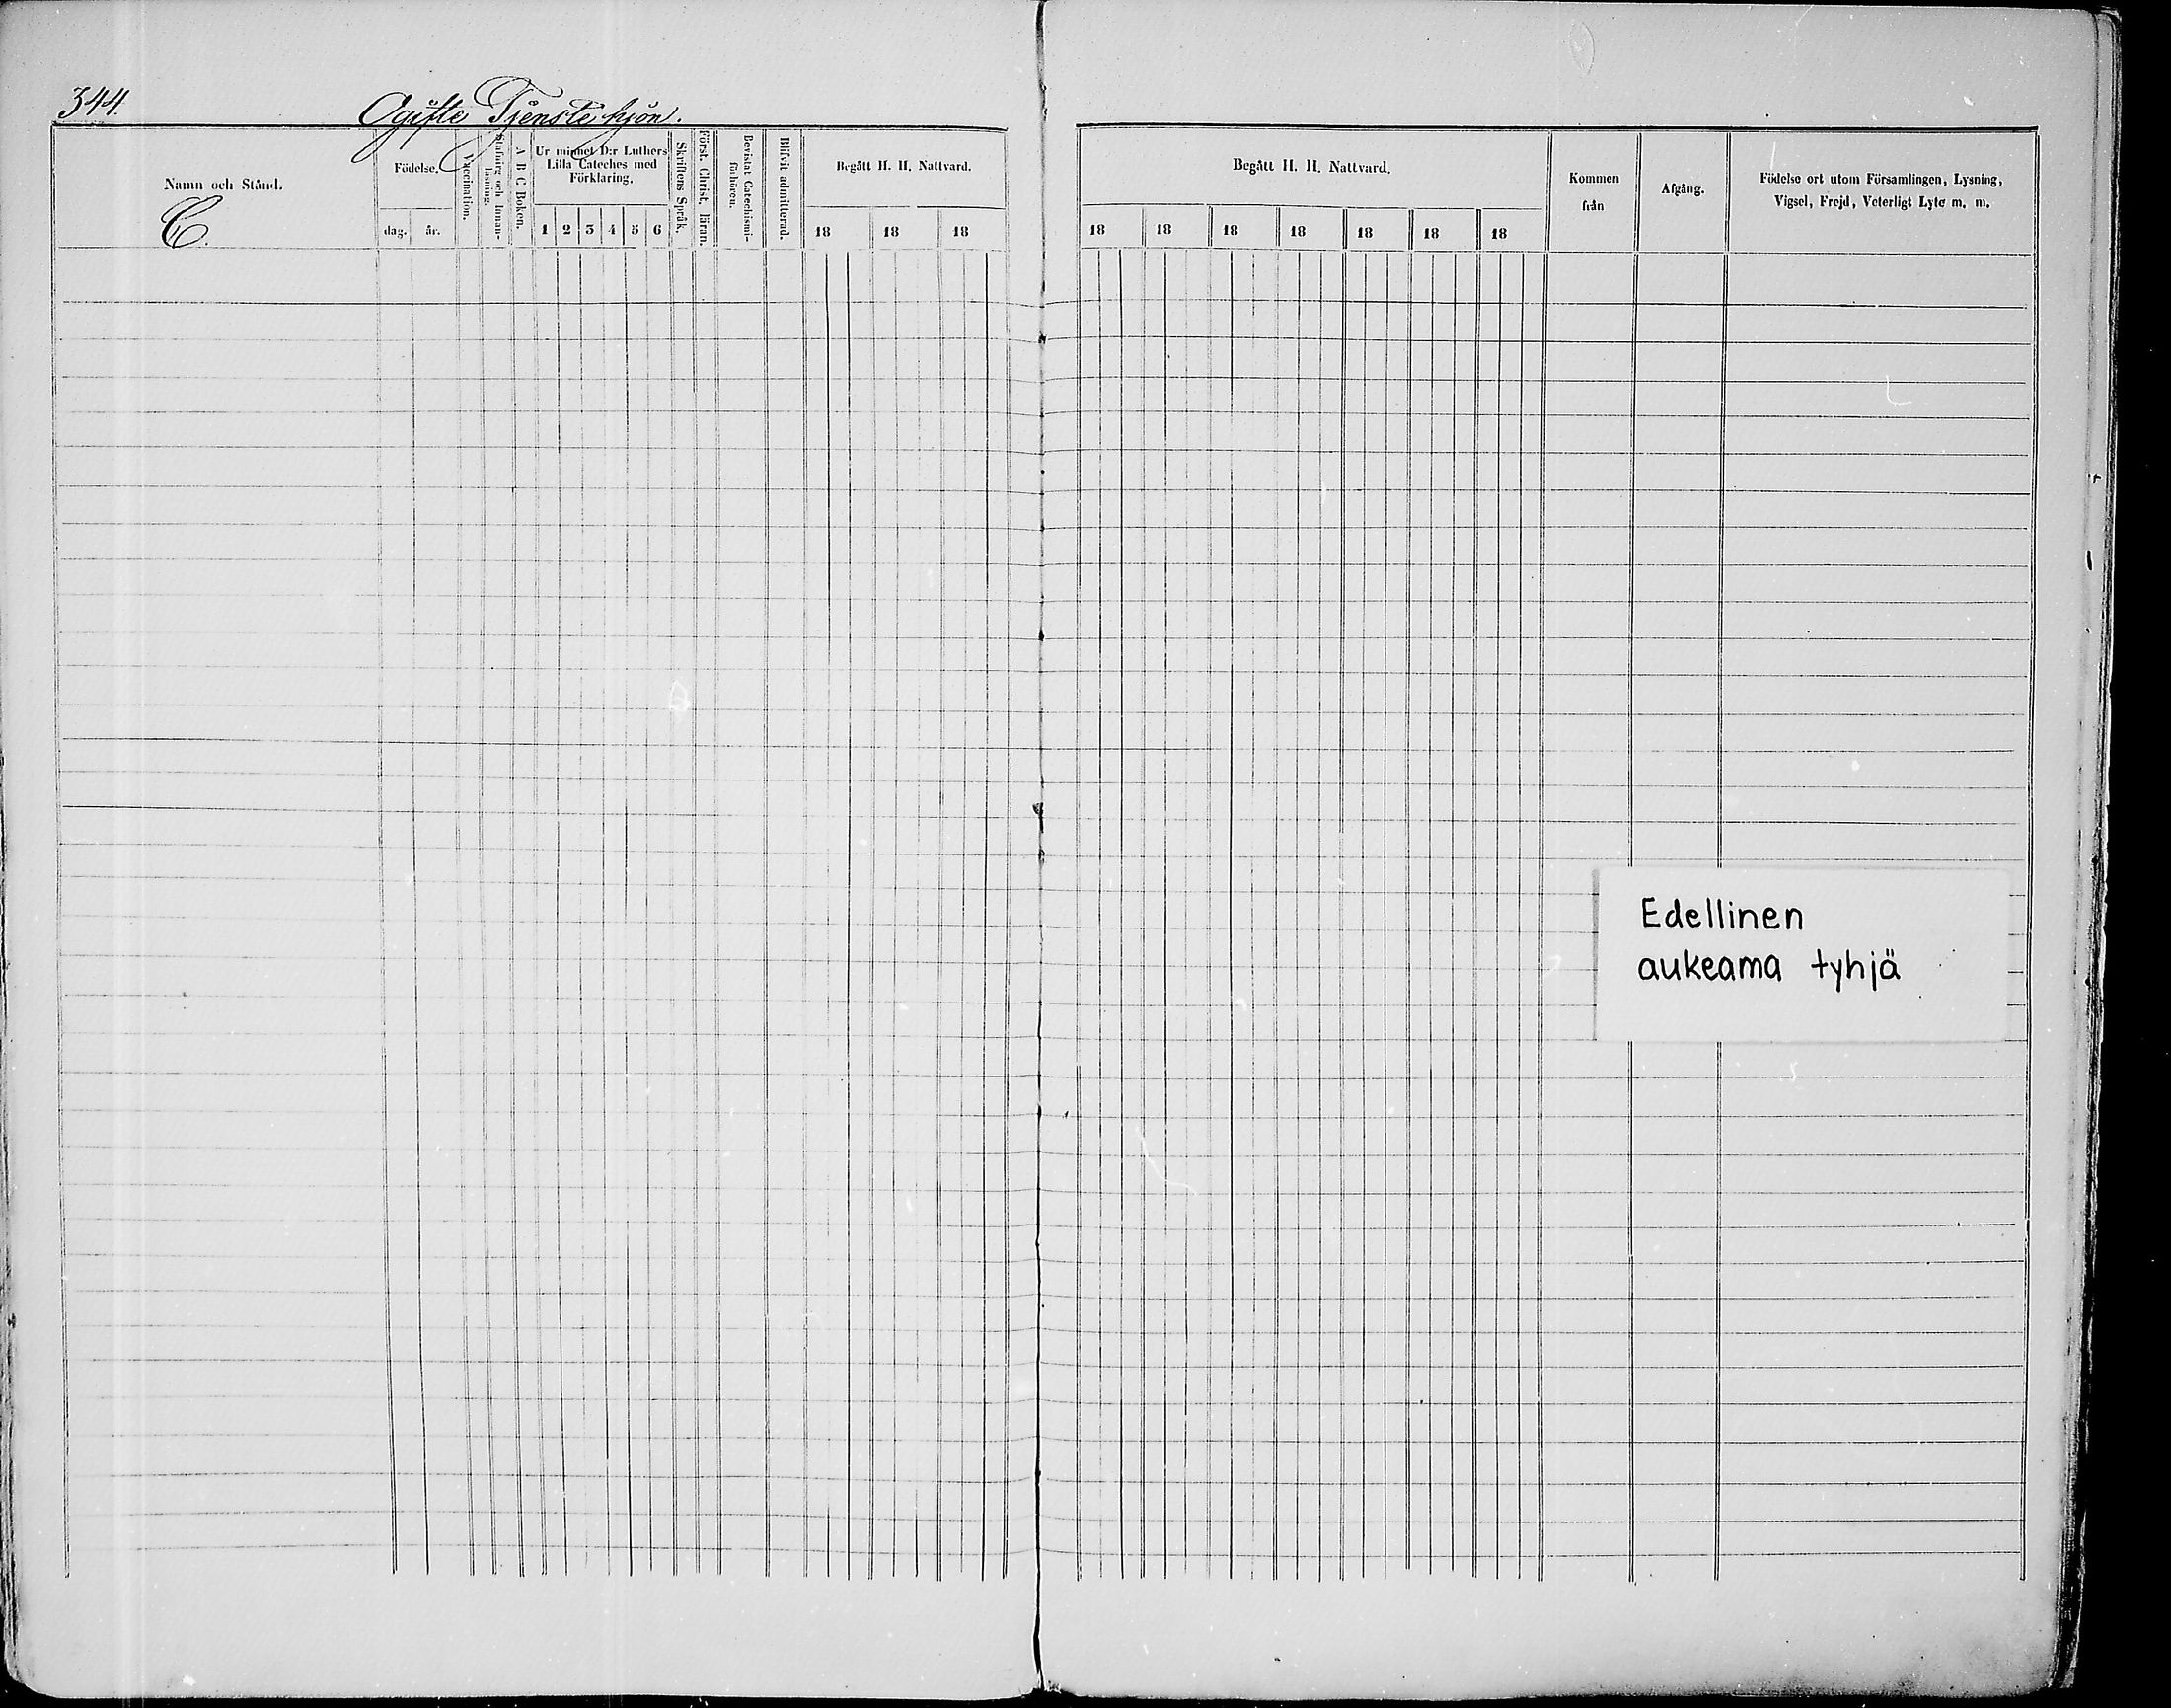 344.
Ogifte Tjenstehjon.
Namn och Stånd.
C.
Födelse.
dag. år.
Vaccination.
Stafning och Innan-
läsning.
A B C Boken.
Ur minnet D:r Luthers
Lilla Cateches med
Förklaring.
1 2 3 4 5 6
Skriftens Språk.
Först. Christ. läran.
Bevistat Catechismi-
förhören.
Blifvit admitterad.
Begått H. H. Nattvard.
18 18 18
Begått H. H. Nattvard.
18 18 18 18 18 18 18
Kommen
från
Afgång.
Födelse ort utom Församlingen, Lysning,
Vigsel, Frejd, Veterligt Lyte m. m.
Edellinen
aukeama tyhjä